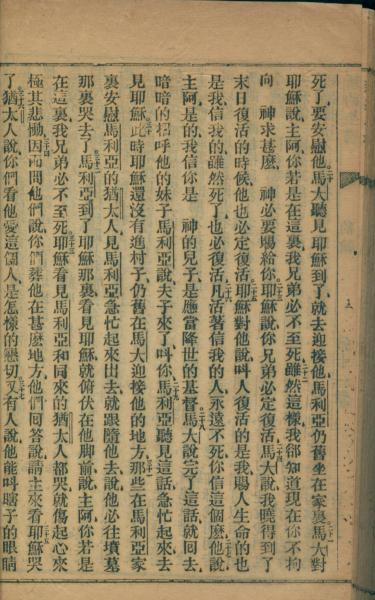 死了要安慰他馬大聽見耶穌到了就去迎接他馬利亞仍舊坐在家裏馬大對
耶穌說主阿你若是在這裏我兄弟必不至死雖然這樣我卻知道現在你不拘
向 神求甚麽 神必要賜給你耶穌說你兄弟必定復活馬大說我曉得到了
末日復活的時候他也必定復活耶穌對他說叫人復活的是我賜人生命的也
是我信我的雖然死了也必復活凡活著信我的人永遠不死你信這個麽他說
主阿是的我信你是 神的兒子是應當降世的基督馬大說完了這話就回去
暗暗的招呼他的妹子馬利亞說夫子來了叫你馬利亞聽見這話急忙起來去
見耶穌此時耶穌還沒有進村子仍舊在馬大迎接他的地方那些在馬利亞家
裏安慰馬利亞的猶太人見馬利亞急忙起來出去就跟隨他去說他必往墳墓
那裏哭去了馬利亞到了耶穌那裏看見耶穌就俯伏在他脚前說主阿你若是
在這裏我兄弟必不至死耶穌看見馬利亞和同來的猶太人都哭就傷起心來
極其悲慟因而問他們說你們葬他在甚麽地方他們回答說請主來看耶穌哭
了猶太人說你們看他愛這個人是怎樣的懇切又有人說他能叫瞎子的眼睛
五